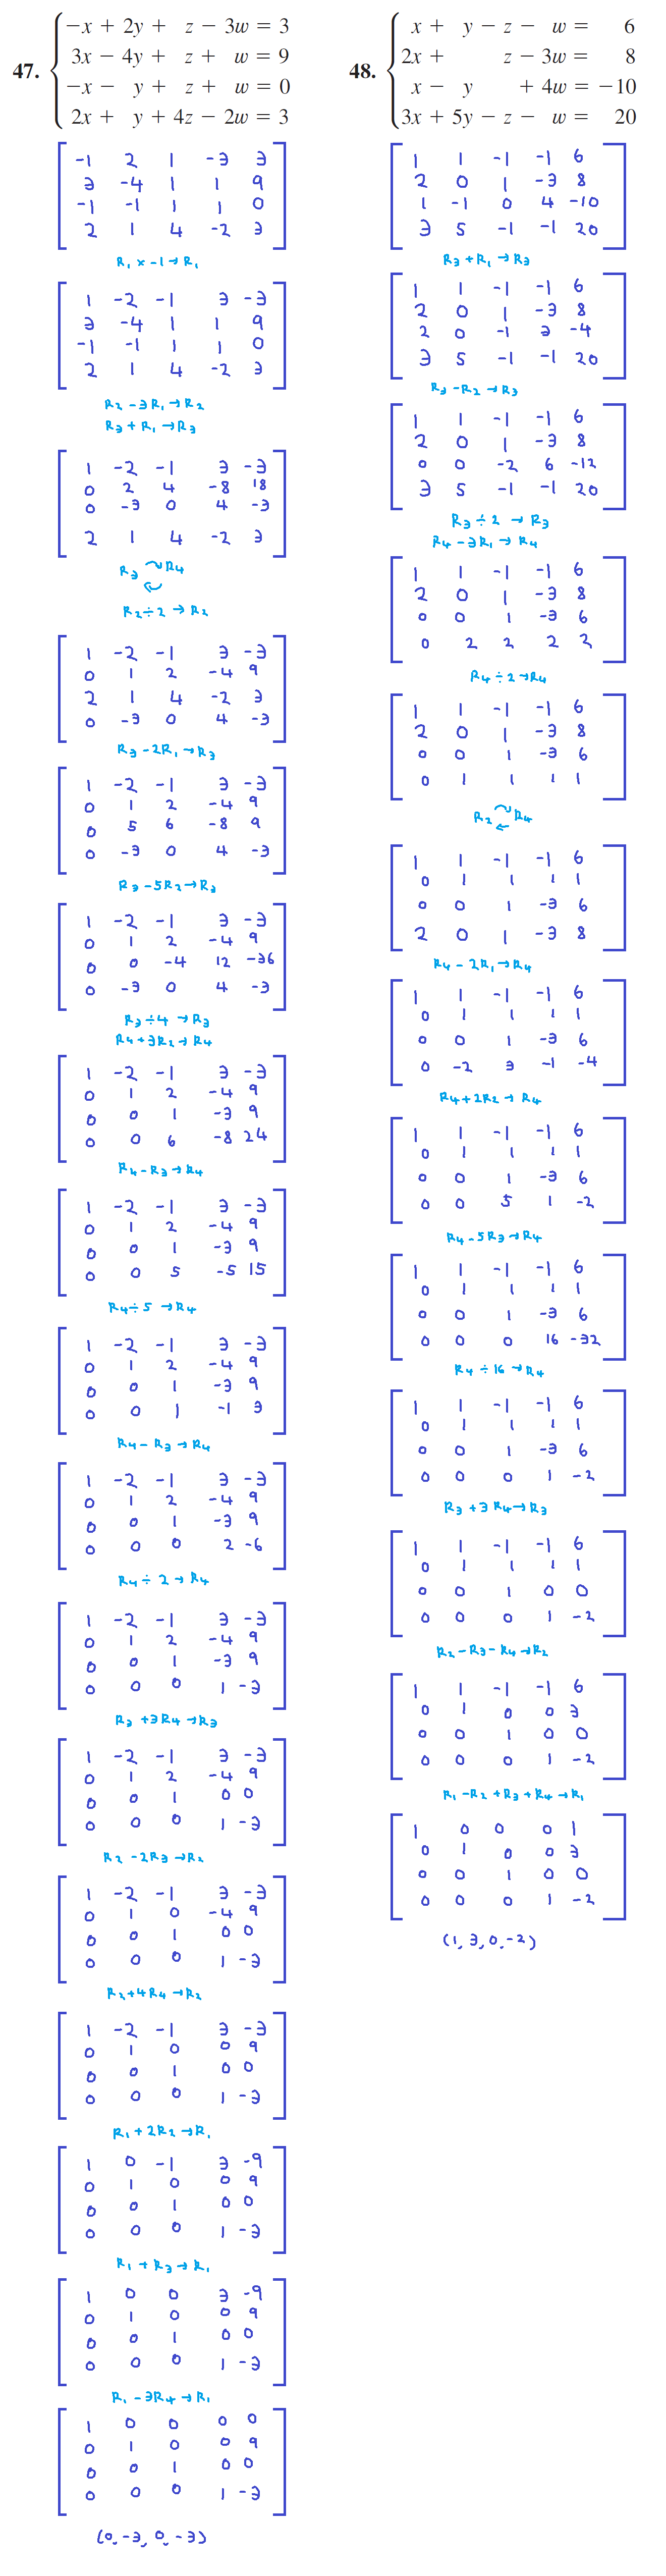 47.
−x + 2y + z − 3w = 3
3x − 4y + z + w = 9
−x − y + z + w = 0
2x + y + 4z − 2w = 3
-1 2 1 -3 3
3 -4 1 1 9
-1 -1 1 1 0
2 1 4 -2 3
R₁ × -1 → R₁
1 -2 -1 3 -3
3 -4 1 1 9
-1 -1 1 1 0
2 1 4 -2 3
R₂ - 3R₁ → R₂
R₃ + R₁ → R₃
1 -2 -1 3 -3
0 2 4 -8 18
0 -3 0 4 -3
2 1 4 -2 3
R₃ ↔ R₄
R₂ ÷ 2 → R₂
1 -2 -1 3 -3
0 1 2 -4 9
2 1 4 -2 3
0 -3 0 4 -3
R₃ - 2R₁ → R₃
1 -2 -1 3 -3
0 1 2 -4 9
0 5 6 -8 9
0 -3 0 4 -3
R₃ - 5R₂ → R₃
1 -2 -1 3 -3
0 1 2 -4 9
0 0 -4 12 -36
0 -3 0 4 -3
R₃ ÷ 4 → R₃
R₄ + 3R₂ → R₄
1 -2 -1 3 -3
0 1 2 -4 9
0 0 1 -3 9
0 0 6 -8 24
R₄ - R₃ → R₄
1 -2 -1 3 -3
0 1 2 -4 9
0 0 1 -3 9
0 0 5 -5 15
R₄ ÷ 5 → R₄
1 -2 -1 3 -3
0 1 2 -4 9
0 0 1 -3 9
0 0 1 -1 3
R₄ - R₃ → R₄
1 -2 -1 3 -3
0 1 2 -4 9
0 0 1 -3 9
0 0 0 2 -6
R₄ ÷ 2 → R₄
1 -2 -1 3 -3
0 1 2 -4 9
0 0 1 -3 9
0 0 0 1 -3
R₃ + 3R₄ → R₃
1 -2 -1 3 -3
0 1 2 -4 9
0 0 1 0 0
0 0 0 1 -3
R₂ - 2R₃ → R₂
1 -2 -1 3 -3
0 1 0 -4 9
0 0 1 0 0
0 0 0 1 -3
R₂ + 4R₄ → R₂
1 -2 -1 3 -3
0 1 0 0 9
0 0 1 0 0
0 0 0 1 -3
R₁ + 2R₂ → R₁
1 0 -1 3 -9
0 1 0 0 9
0 0 1 0 0
0 0 0 1 -3
R₁ + R₃ → R₁
1 0 0 3 -9
0 1 0 0 9
0 0 1 0 0
0 0 0 1 -3
R₁ - 3R₄ → R₁
1 0 0 0 0
0 1 0 0 9
0 0 1 0 0
0 0 0 1 -3
(0, -3, 0, -3)
48.
x + y − z − w = 6
2x + z − 3w = 8
x − y + 4w = −10
3x + 5y − z − w = 20
1 1 -1 -1 6
2 0 1 -3 8
1 -1 0 4 -10
3 5 -1 -1 20
R₃ + R₁ → R₃
1 1 -1 -1 6
2 0 1 -3 8
2 0 -1 3 -4
3 5 -1 -1 20
R₃ - R₂ → R₃
1 1 -1 -1 6
2 0 1 -3 8
0 0 -2 6 -12
3 5 -1 -1 20
R₃ ÷ 2 → R₃
R₄ - 3R₁ → R₄
1 1 -1 -1 6
2 0 1 -3 8
0 0 1 -3 6
0 2 2 2 2
R₄ ÷ 2 → R₄
1 1 -1 -1 6
2 0 1 -3 8
0 0 1 -3 6
0 1 1 1 1
R₂ ↔ R₄
1 1 -1 -1 6
0 1 1 1 1
0 0 1 -3 6
2 0 1 -3 8
R₄ - 2R₁ → R₄
1 1 -1 -1 6
0 1 1 1 1
0 0 1 -3 6
0 -2 3 -1 -4
R₄ + 2R₂ → R₄
1 1 -1 -1 6
0 1 1 1 1
0 0 1 -3 6
0 0 5 1 -2
R₄ - 5R₃ → R₄
1 1 -1 -1 6
0 1 1 1 1
0 0 1 -3 6
0 0 0 16 -32
R₄ ÷ 16 → R₄
1 1 -1 -1 6
0 1 1 1 1
0 0 1 -3 6
0 0 0 1 -2
R₃ + 3R₄ → R₃
1 1 -1 -1 6
0 1 1 1 1
0 0 1 0 0
0 0 0 1 -2
R₂ - R₃ - R₄ → R₂
1 1 -1 -1 6
0 1 0 0 3
0 0 1 0 0
0 0 0 1 -2
R₁ - R₂ + R₃ + R₄ → R₁
1 0 0 0 1
0 1 0 0 3
0 0 1 0 0
0 0 0 1 -2
(1, 3, 0, -2)